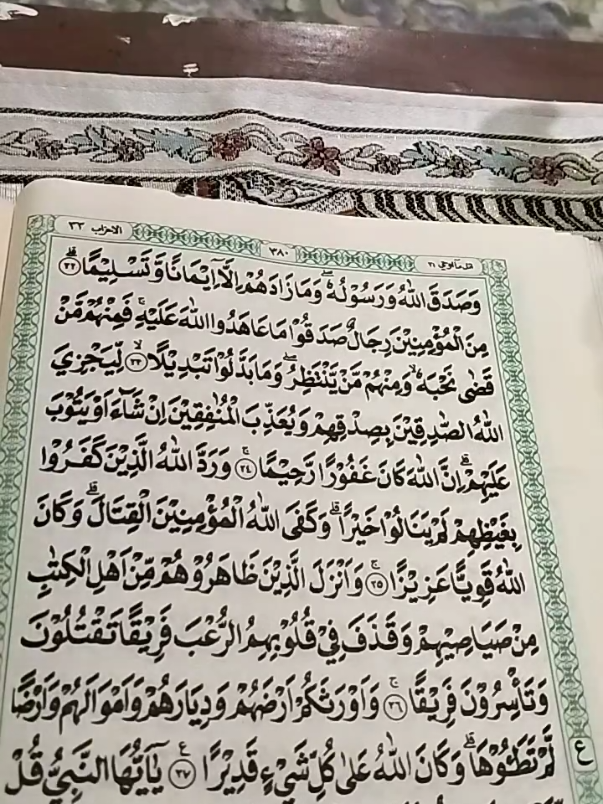 الاحزاب ٣٣
٣٨٠
اتل ما اوحي ٢١
وَصَدَقَ اللّٰهُ وَرَسُوْلُهٗ ۖ وَمَا زَادَهُمْ اِلَّآ اِيْمَانًا وَّتَسْلِيْمًا ۗ ﴿٢٢﴾
مِنَ الْمُؤْمِنِيْنَ رِجَالٌ صَدَقُوْا مَا عَاهَدُوا اللّٰهَ عَلَيْهِ ۚ فَمِنْهُمْ مَّنْ
قَضٰى نَحْبَهٗ ۙ وَمِنْهُمْ مَّنْ يَّنْتَظِرُ ۖ وَمَا بَدَّلُوْا تَبْدِيْلًا ۙ ﴿٢٣﴾ لِّيَجْزِيَ
اللّٰهُ الصّٰدِقِيْنَ بِصِدْقِهِمْ وَيُعَذِّبَ الْمُنٰفِقِيْنَ اِنْ شَاۤءَ اَوْ يَتُوْبَ
عَلَيْهِمْ ۗ اِنَّ اللّٰهَ كَانَ غَفُوْرًا رَّحِيْمًا ۚ ﴿٢٤﴾ وَرَدَّ اللّٰهُ الَّذِيْنَ كَفَرُوْا
بِغَيْظِهِمْ لَمْ يَنَالُوْا خَيْرًا ۗ وَكَفَى اللّٰهُ الْمُؤْمِنِيْنَ الْقِتَالَ ۗ وَكَانَ
اللّٰهُ قَوِيًّا عَزِيْزًا ۚ ﴿٢٥﴾ وَاَنْزَلَ الَّذِيْنَ ظَاهَرُوْهُمْ مِّنْ اَهْلِ الْكِتٰبِ
مِنْ صَيَاصِيْهِمْ وَقَذَفَ فِيْ قُلُوْبِهِمُ الرُّعْبَ فَرِيْقًا تَقْتُلُوْنَ
وَتَأْسِرُوْنَ فَرِيْقًا ۚ ﴿٢٦﴾ وَاَوْرَثَكُمْ اَرْضَهُمْ وَدِيَارَهُمْ وَاَمْوَالَهُمْ وَاَرْضًا
لَّمْ تَطَـُٔوْهَا ۗ وَكَانَ اللّٰهُ عَلٰى كُلِّ شَيْءٍ قَدِيْرًا ۧ ﴿٢٧﴾ يٰٓاَيُّهَا النَّبِيُّ قُلْ
ع